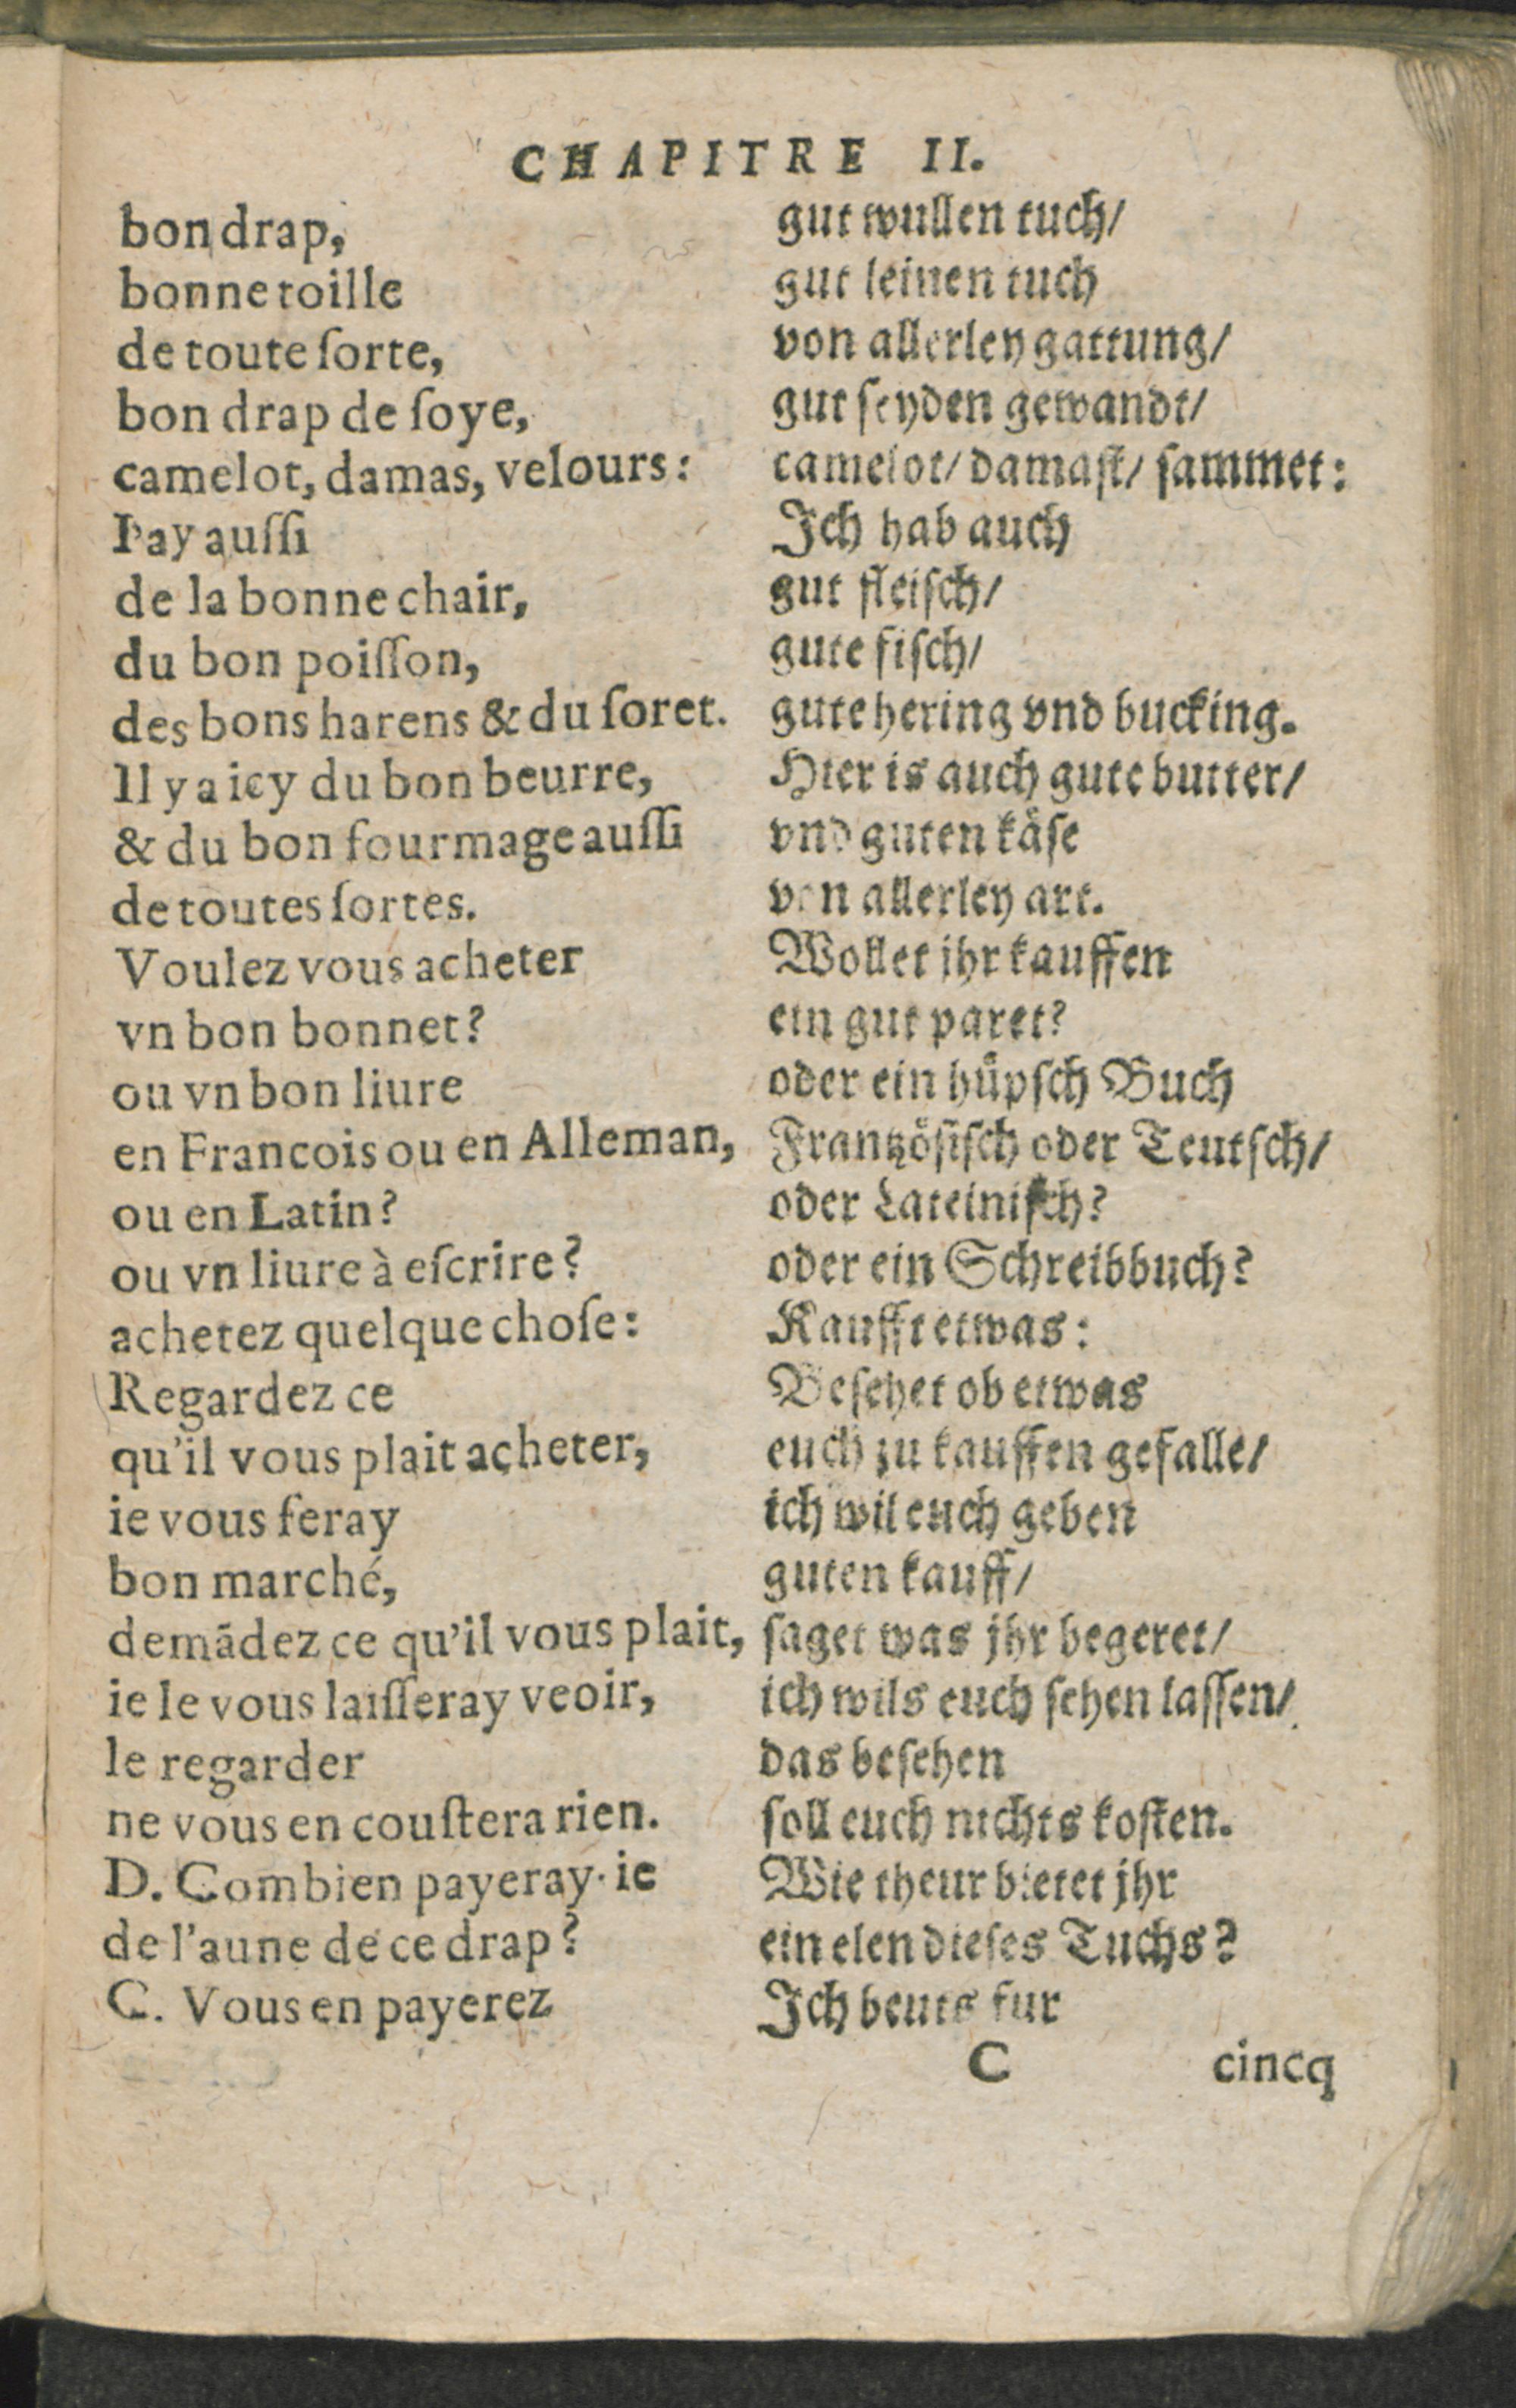 CHAPITRE II.
bon drap,
bonne toille
de toute ſorte,
bon drap de ſoye,
camelot, damas, velours:
I'ay auſſi
de la bonne chair,
du bon poiſſon,
des bons harens & du ſoret.
Il y a icy du bon beurre,
& du bon fourmage auſſi
de toutes ſortes.
Voulez vous acheter
vn bon bonnet?
ou vn bon liure
en Francois ou en Alleman,
ou en Latin?
ou vn liure à eſcrire?
achetez quelque choſe:
Regardez ce
qu'il vous plait acheter,
ie vous feray
bon marché,
demādez ce qu'il vous plait,
ie le vous laiſſeray veoir,
le regarder
ne vous en couſtera rien.
D. Combien payeray-ie
de l'aune de ce drap?
C. Vous en payerez
gut wullen tuch/
gut leinen tuch
von allerley gattung/
gut ſeyden gewandt/
camelot/ damaſt/ ſammet:
Ich hab auch
gut fleiſch/
gute fiſch/
gute hering vnd bucking.
Hier is auch gute butter/
vnd guten kåſe
von allerley art.
Wollet jhr kauffen
ein gut paret?
oder ein hüpſch Buch
Frantzöſiſch oder Teutſch/
oder Lateiniſch?
oder ein Schreibbuch?
Kaufft etwas:
Beſehet ob etwas
euch zu kauffen gefalle/
ich wil euch geben
guten kauff/
ſaget was jhr begeret/
ich wils euch ſehen laſſen/
das beſehen
ſoll euch nichts koſten.
Wie theur bietet jhr
ein elen dieſes Tuchs?
Ich beuts fur
C cincq